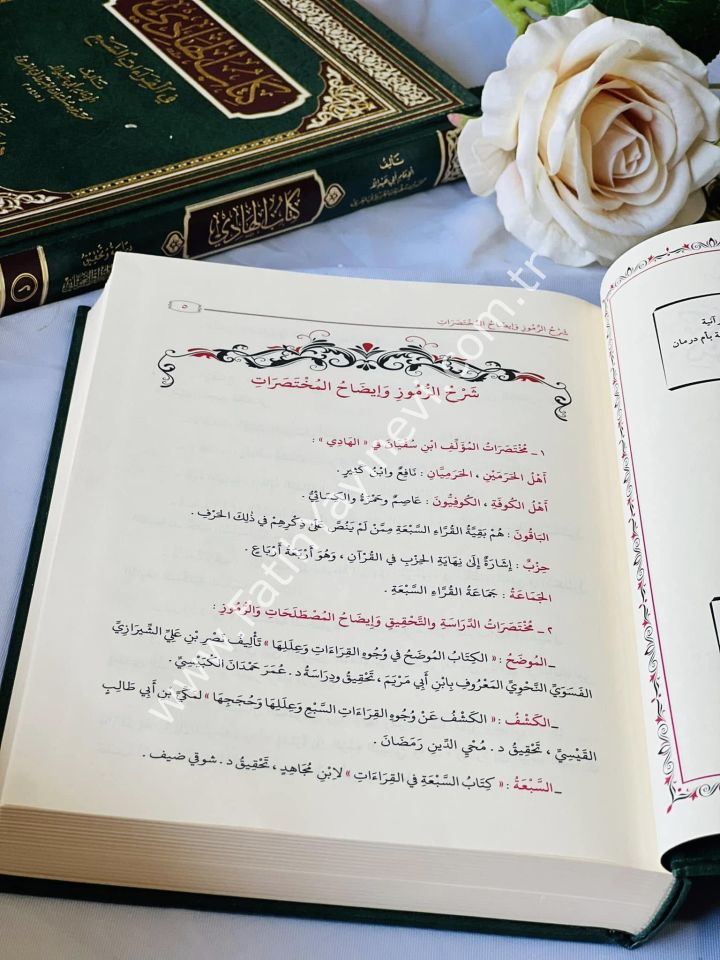 كتاب الهادي
في القراءات السبع
تأليف
كتاب الهادي
تأليف
٢
٥
شَرْحُ الرُّمُوزِ وَإِيضَاحُ المُخْتَصَرَاتِ
شَرْحُ الرُّمُوزِ وَإِيضَاحُ المُخْتَصَرَاتِ
١ - مُخْتَصَرَاتُ المُؤَلِّفِ ابْنِ سُفْيَانَ في « الهَادِي » :
أَهْلُ الحَرَمَيْنِ ، الحَرَمِيَّانِ : نَافِعٌ وابْنُ كَثِيرٍ .
أَهْلُ الكُوفَةِ ، الكُوفِيُّونَ : عَاصِمٌ وحَمْزَةُ والكِسَائِيُّ .
البَاقُونَ : هُمْ بَقِيَّةُ القُرَّاءِ السَّبْعَةِ مِمَّنْ لَمْ يَنُصَّ عَلَىٰ ذِكْرِهِمْ فِي ذٰلِكَ الحَرْفِ .
حِزْبٌ : إِشَارَةٌ إِلَىٰ نِهَايَةِ الحِزْبِ في القُرْآنِ ، وَهُوَ أَرْبَعَةُ أَرْبَاعٍ .
الجَمَاعَةُ : جَمَاعَةُ القُرَّاءِ السَّبْعَةِ .
٢ - مُخْتَصَرَاتُ الدِّرَاسَةِ والتَّحْقِيقِ وَإِيضَاحُ المُصْطَلَحَاتِ والرُّمُوزِ :
ـ المُوضَحُ : « الكِتَابُ المُوضَحُ في وُجُوهِ القِرَاءَاتِ وَعِلَلِهَا » تَأْلِيفُ نَصْرِ بْنِ عَلِيٍّ الشِّيرَازِيِّ
الفَسَوِيِّ النَّحْوِيِّ المَعْرُوفِ بِابْنِ أَبِي مَرْيَمَ ، تَحْقِيقُ ودِرَاسَةُ د . عُمَرَ حَمْدَانَ الكُبَيْسِيِّ .
ـ الكَشْفُ : « الكَشْفُ عَنْ وُجُوهِ القِرَاءَاتِ السَّبْعِ وَعِلَلِهَا وَحُجَجِهَا » لِمَكِّيِّ بْنِ أَبِي طَالِبٍ
القَيْسِيِّ ، تَحْقِيقُ د . مُحْيِي الدِّينِ رَمَضَانَ .
ـ السَّبْعَةُ : « كِتَابُ السَّبْعَةِ فِي القِرَاءَاتِ » لاِبْنِ مُجَاهِدٍ ، تَحْقِيقُ د . شوقي ضيف .
بأم درمان
www.Fatihyayinevi.com.tr